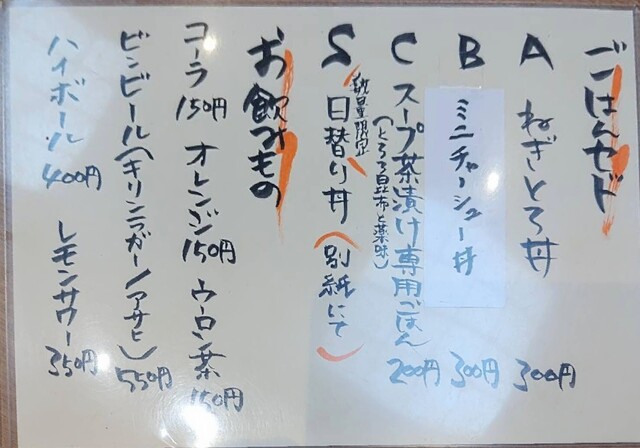 ごはんセット
A ねぎとろ丼 300円
B ミニチャーシュー丼 300円
C スープ茶漬け専用ごはん 200円
(とろろ昆布と薬味)
S 数量限定 日替り丼 (別紙にて)
お飲みもの
コーラ 150円 オレンジ 150円 ウーロン茶 150円
ビンビール(キリンラガー/アサヒ) 550円
ハイボール 400円 レモンサワー 350円